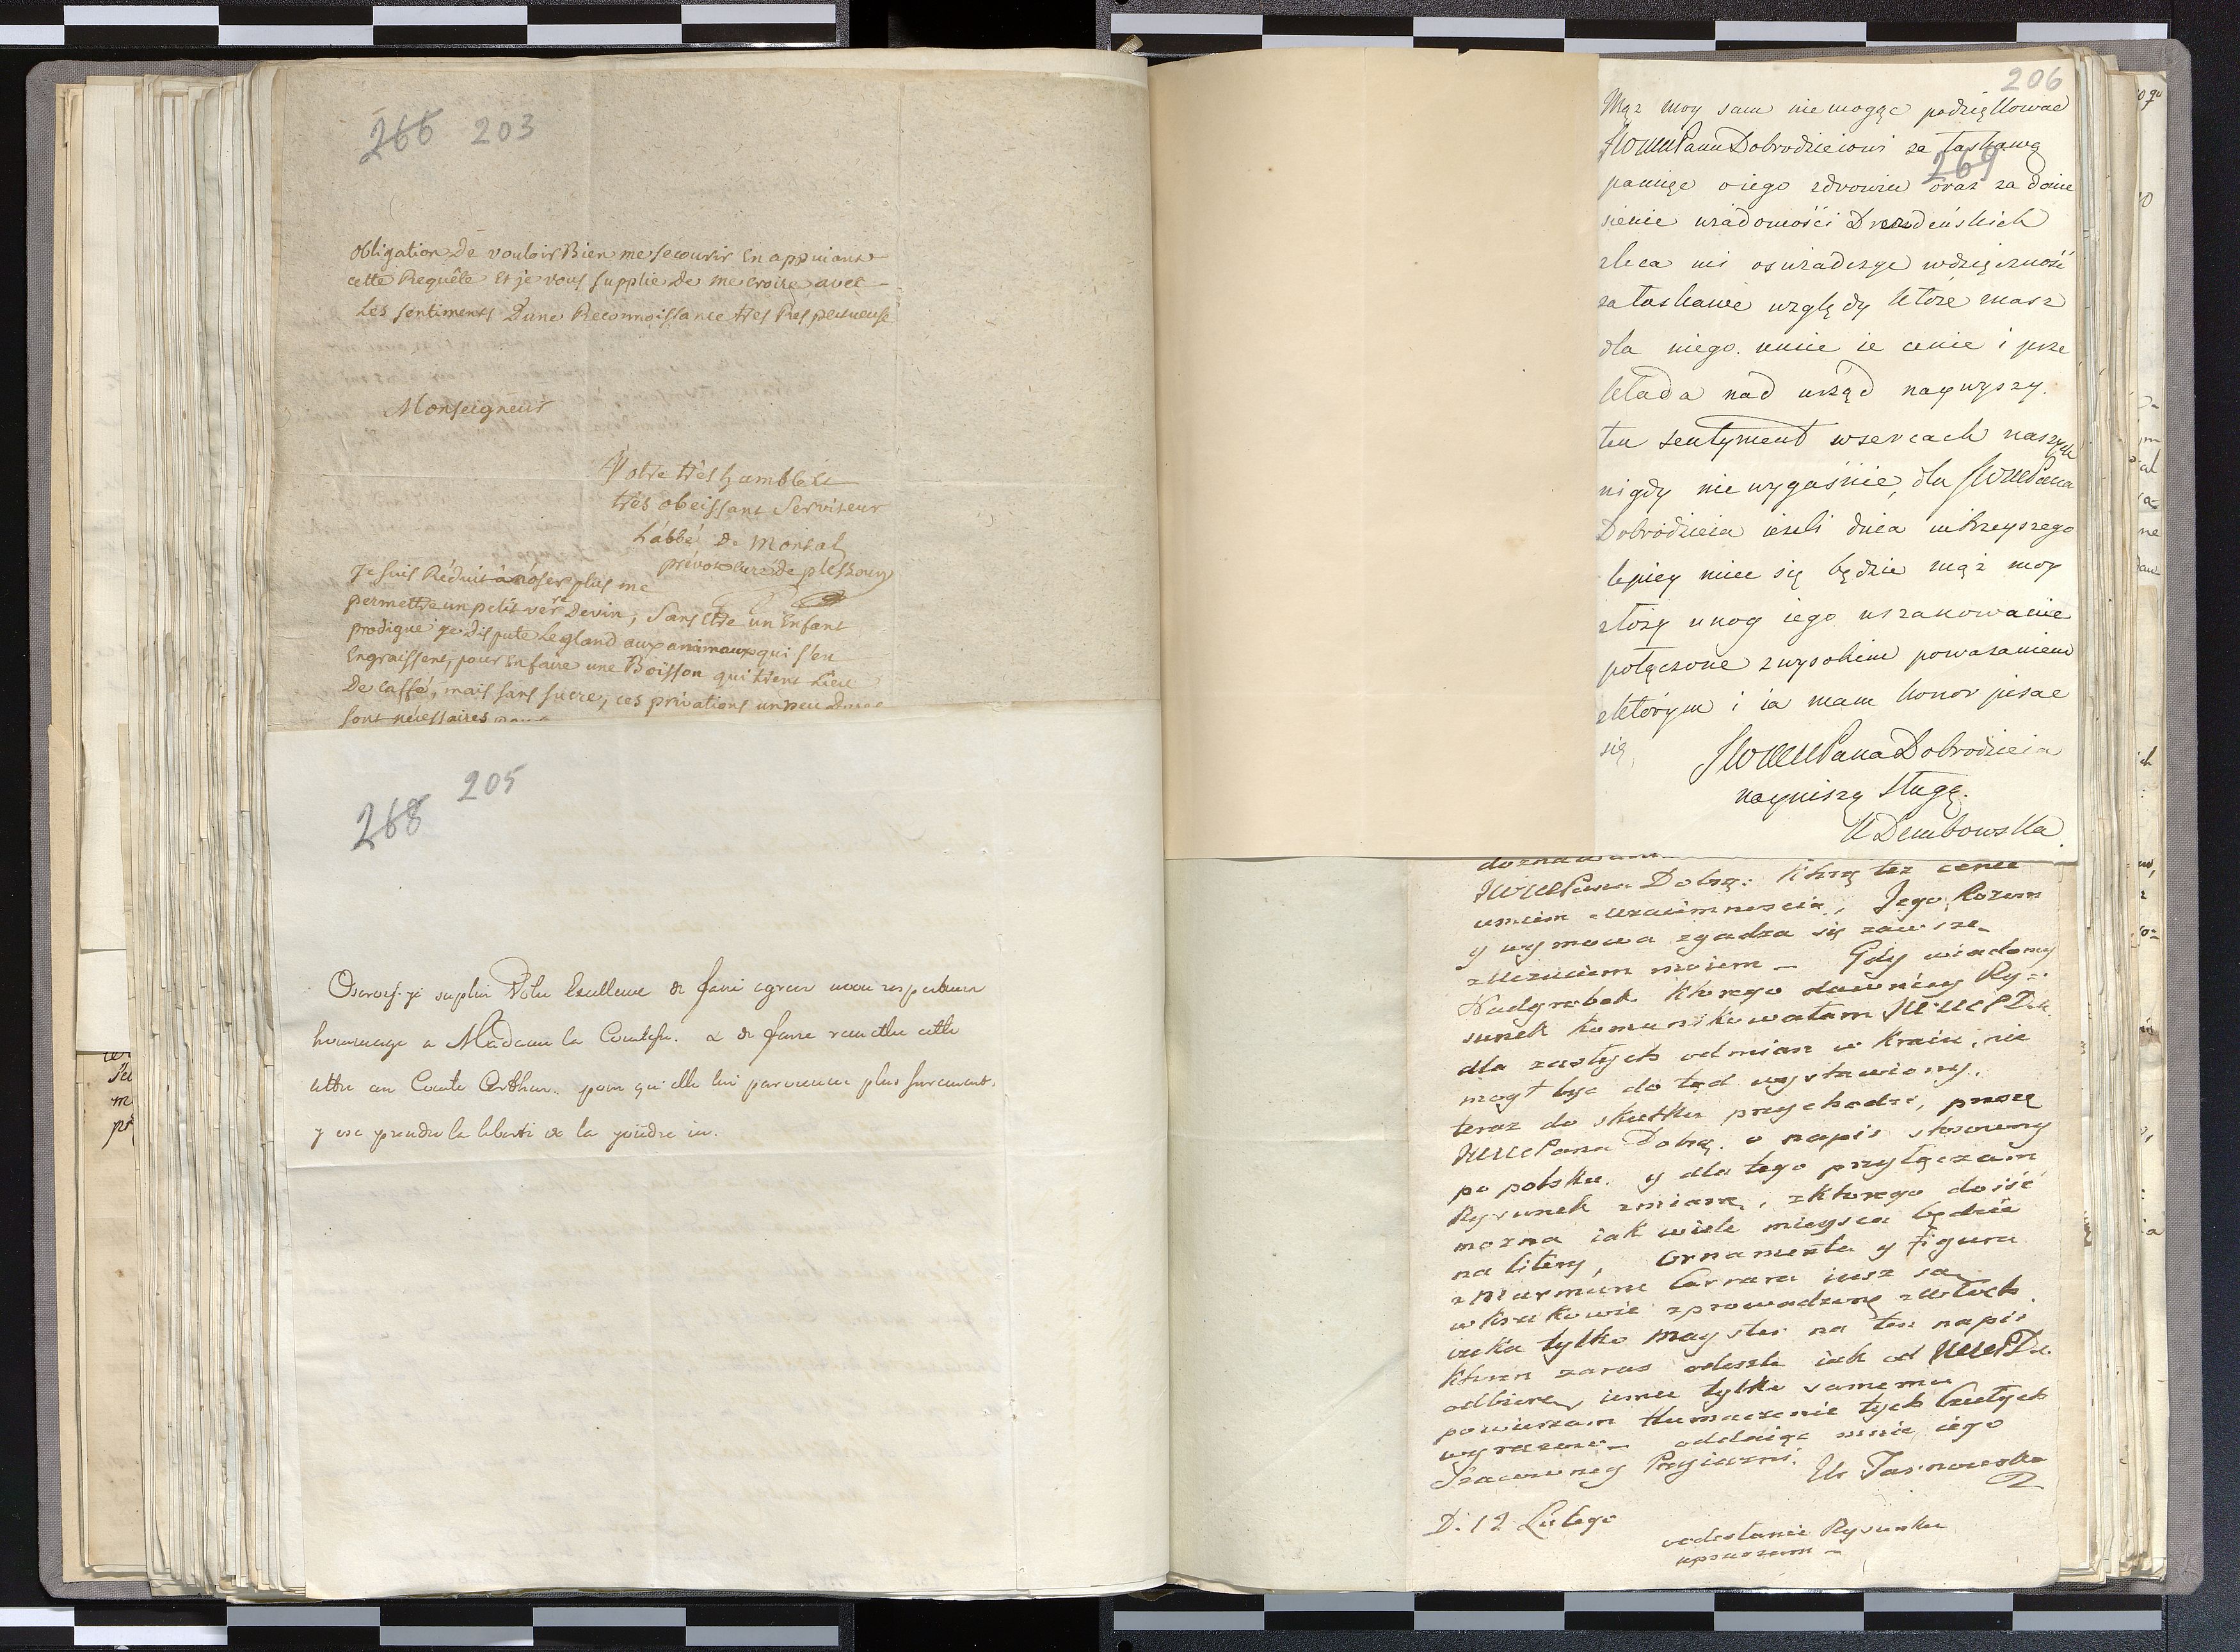 266 203
obligation de vouloir Bien me secourir En appuiant
cette Requête Et je vous supplie de me croire avec
Les sentiments D'une Reconnoissance très Respectueuse
Monseigneur
Votre très humble &
très obeissant Serviteur
L'abbé de Monsal
prévot curé de
Je suis Réduit à n'oser plus me
permettre un petit verre Devin, Sans être un Enfant
prodigue je dispute Le gland aux animaux qui s'en
Engraissent, pour En faire une Boisson qui tient Lieu
De Caffé, mais sans sucre, ces privations un peu
sont nécessaires
268 205
Oserois-je suplier Votre Excellence de faire agreer mon respectueux
hommage a Madame la Comtesse. & de faire remettre cette
lettre au Comte Arthur. pour qu'elle lui parvienne plus surement.
j'ose prendre la liberté de la joindre ici.
206
Mąż moy sam nie mogąc podziękować
JWMPanu Dobrodzieiowi za łaskawą
269
pamięc o iego zdrowiu oraz za donie
sienie wiadomości Drezdeńskich
zleca mi oswiadczyc wdzięczność
za łaskawe względy które masz
dla niego. umie ie cenic i prze
kłada nad urząd naywyszy.
ten sentyment w sercach naszych
nigdy nie wygaśnie, dla JWMPana
Dobrodzieia ieżeli dnia iutrzeyszego
lepiey miec się będzie mąż moy
złoży u nog iego uszanowanie
połączone z wysokiem powazaniem
z którym i ia mam honor pisac
się,
JWMPana Dobrodzieia
nayniszą sługą.
Dembowska
JWMPana Dobrą: którą też cenic
umiem z wzaiemnoscia, Jego Rozum
y wymowa zgadza się zawsze
z uczuciem moiem – Gdy wiadomy
Nadgrobek ktorego dawniey Ry=
sunek komunikowałam JWMPD.
dla zaszłych odmian w kraiu, nie
mogł byc do tąd wystawiony,
teraz do skutku przychodzi, proszę
JWMPana Dobrą. o napis stosowny
po polsku. y dla tego przyłączam
Rysunek zmiarą, z ktorego doisć
mozna iak wiele mieysca będzie
na litery, Ornamenta y figura
z Marmuru Carrara iusz są
w krakowie zprowadzone z Włoch.
czeka tylko Mayster na ten napis
ktory zaraz odeszle iak od JWMPD.
odbiore, iemu tylko samemu
powierzam tłumaczenie tych czułych
wyrazow – oddaiąc mnie iego
Szacowney Przyiazni.
Ur Tarnowska
D. 12 Lutego
o odesłanie Rysunku
upraszam –